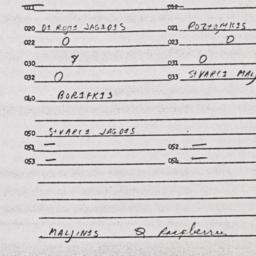 020 DI ROJI JAGIOIS 021 POZIOMKIS
022 0 023 0
030 8 031 0
032 0 033 SIVARCI MAL
040 BORIFKIS
050 SIVARCI JAGOIS
051 — 052 —
053 — 054 —
MALJINIS & Raspberrie